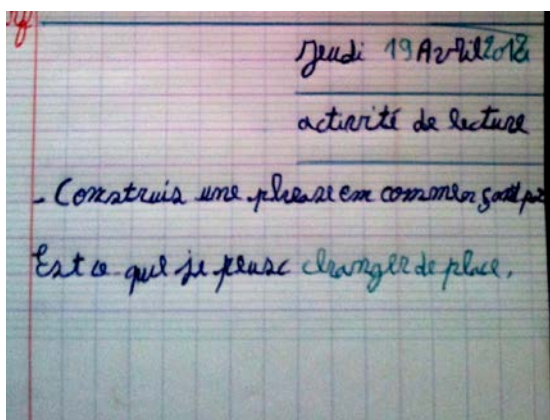 Jeudi 19 Avril 2018
activité de lecture
- Construis une phrase en commençant pa
Est ce que je peux changer de place.